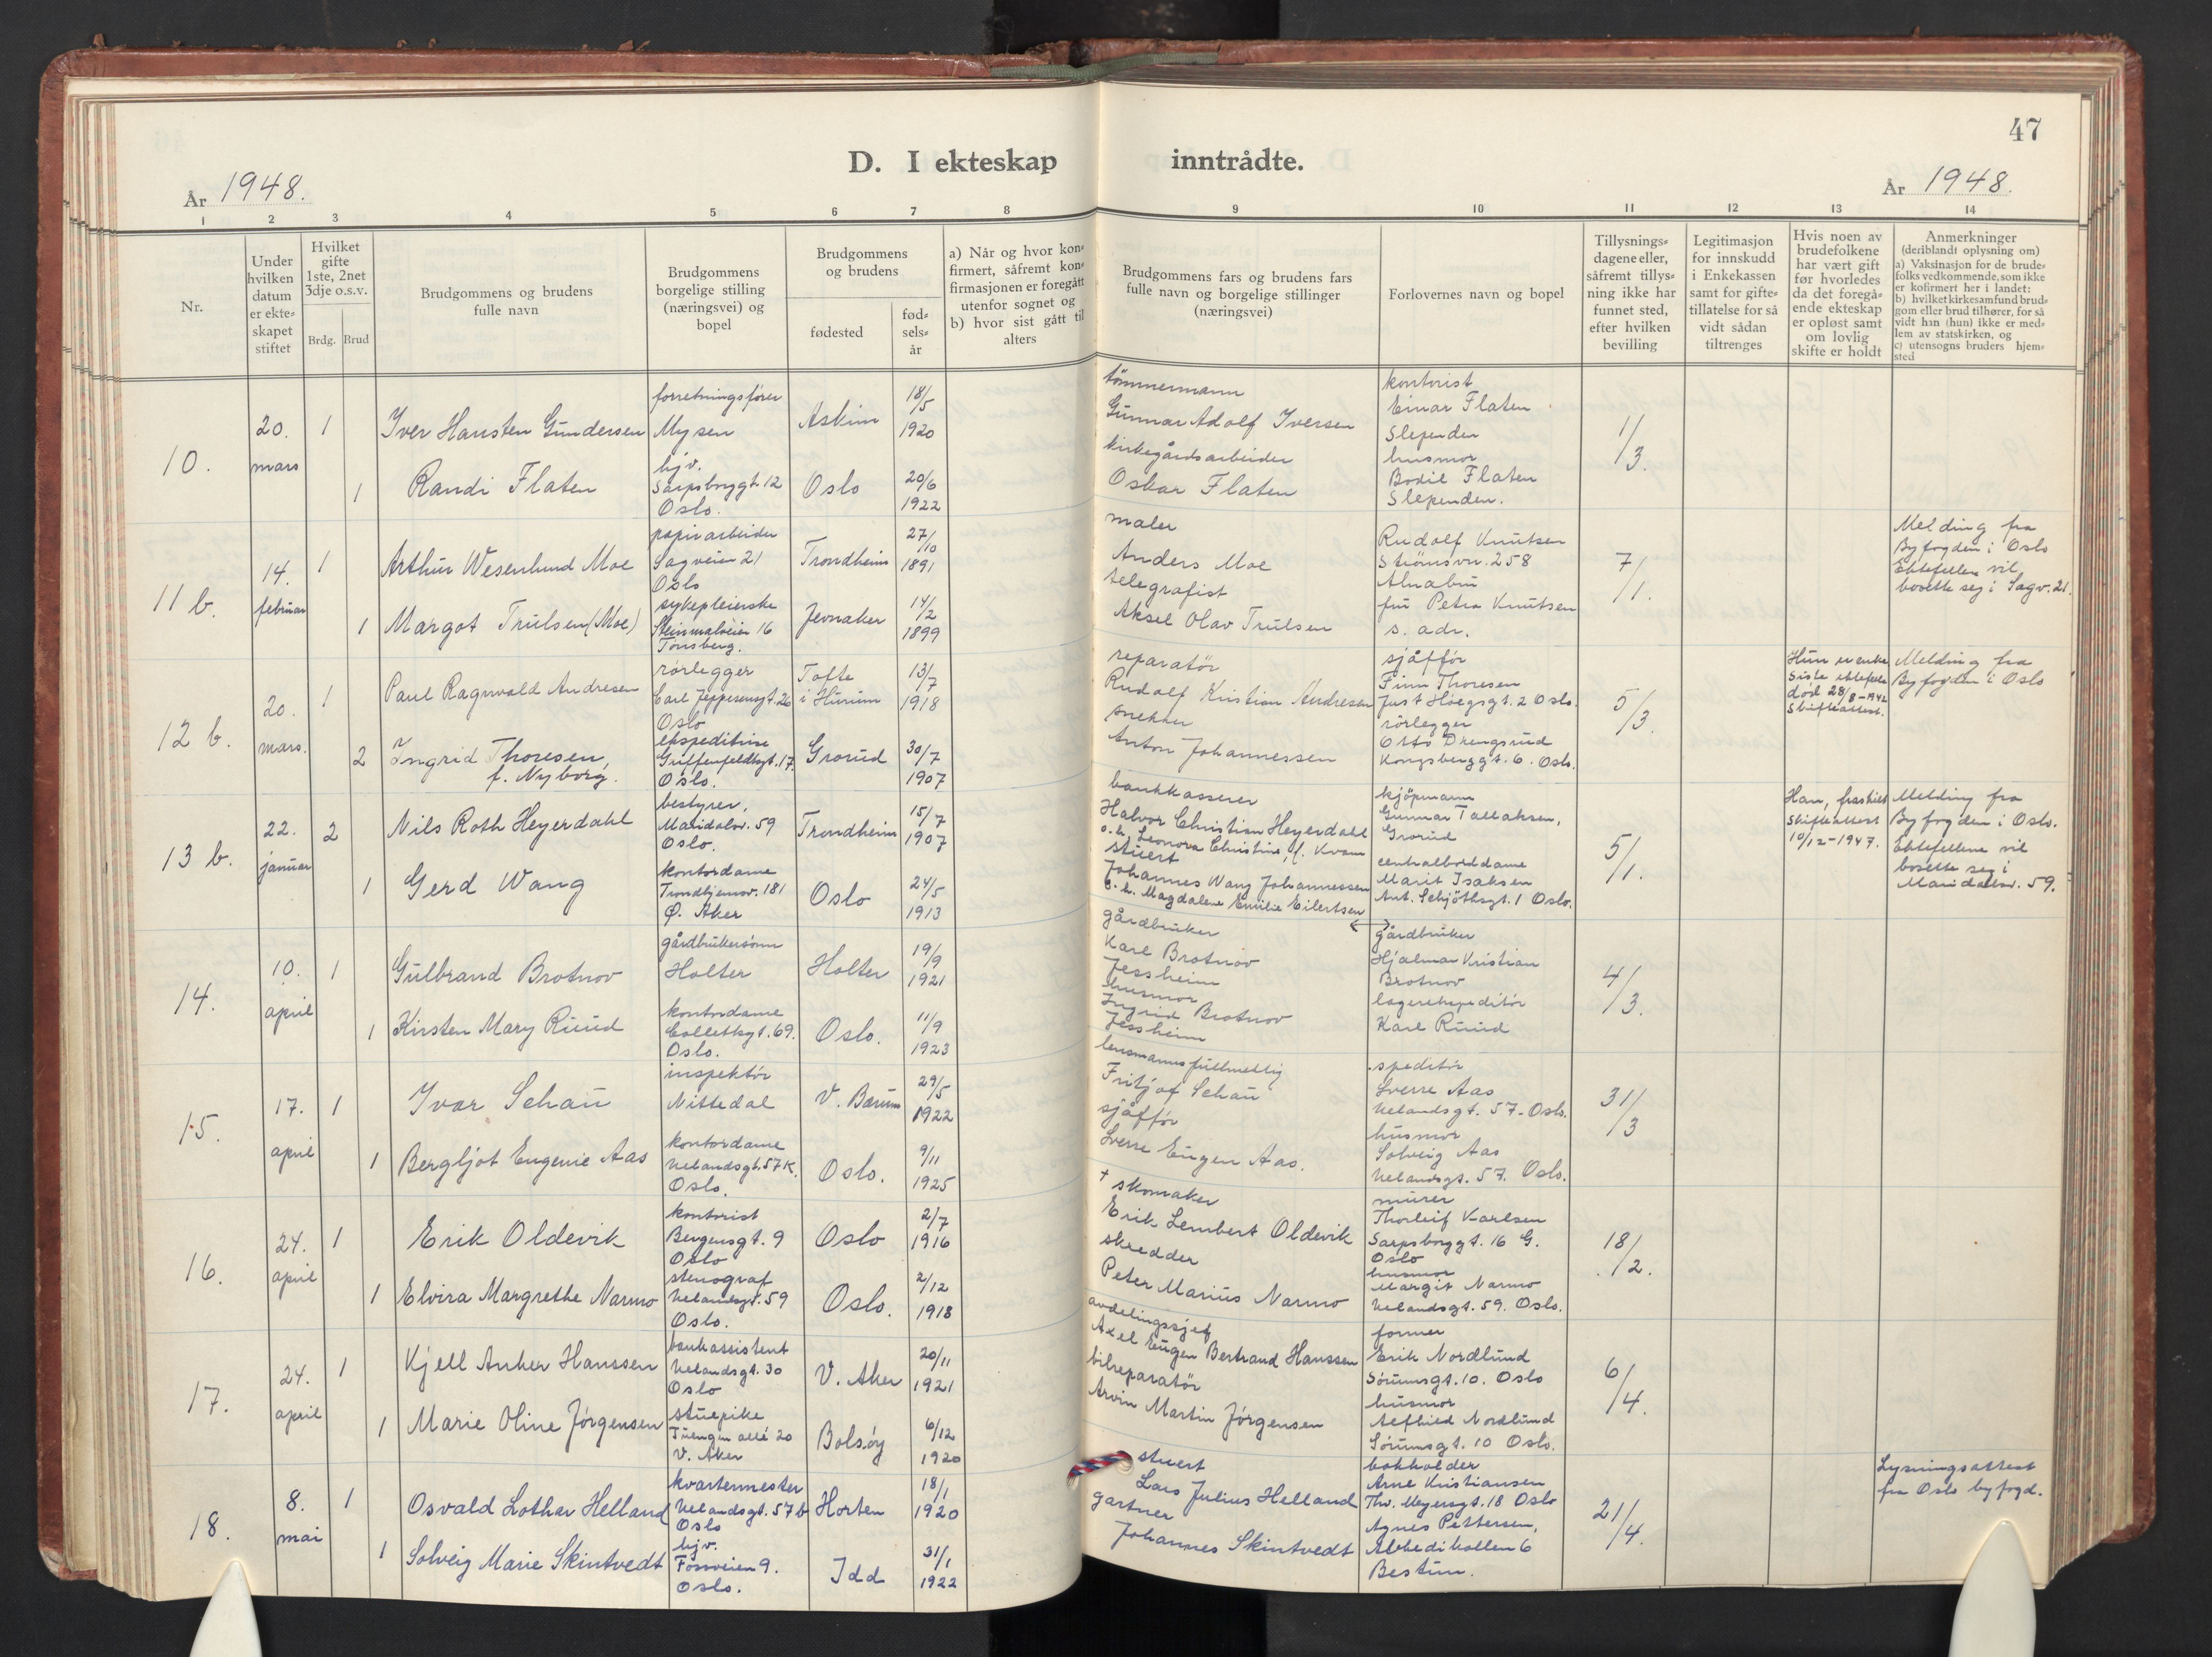 47
D. I ekteskap inntrådte.
År 1948.
År 1948.
1 2 3 4 5 6 7 8 9 10 11 12 13 14
Nr.
Under
hvilken
datum
er ekte-
skapet
stiftet
Hvilket
gifte
1ste, 2net
3dje o.s.v.
Brdg. Brud
Brudgommens og brudens
fulle navn
Brudgommens
borgelige stilling
(næringsvei) og
bopel
Brudgommens
og brudens
fødested
fød-
sels-
år
a) Når og hvor kon-
firmert, såfremt kon-
firmasjonen er foregått
utenfor sognet og
b) hvor sist gått til
alters
Brudgommens fars og brudens fars
fulle navn og borgelige stillinger
(næringsvei)
Forlovernes navn og bopel
Tillysnings-
dagene eller,
såfremt tillys-
ning ikke har
funnet sted,
efter hvilken
bevilling
Legitimasjon
for innskudd
i Enkekassen
samt for gifte-
tillatelse for så
vidt sådan
tiltrenges
Hvis noen av
brudefolkene
har vært gift
før hvorledes
da det foregå-
ende ekteskap
er opløst samt
om lovlig
skifte er holdt
Anmerkninger
(deriblandt oplysning om)
a) Vaksinasjon for de brude-
folks vedkommende, som ikke
er kofirmert her i landet:
b) hvilket kirkesamfund brud-
gom eller brud tilhører, for så
vidt han (hun) ikke er med-
lem av statskirken, og
c) utensogns bruders hjem-
sted
10.
20.
mars
1
Iver Hansten Gundersen
forretningsfører
Mysen
Askim
18/5
1920
1
Randi Flaten
hjv.
Sarpsborggt. 12
Oslo.
Oslo
20/6
1922
tömmermann
Gunnar Adolf Iversen
kirkegårdsarbeider
Oskar Flaten
kontorist
Einar Flaten
Slependen
husmor
Bodil Flaten
Slependen.
1/3.
11 b.
14.
februar
1
Arthur Wesenlund Moe
papirarbeider
Sagveien 21
Oslo
Trondheim
27/10
1891
1
Margot Trulsen (Moe)
sykepleierske
Steinmalveien 16
Tønsberg.
Jevnaker
14/2
1899
maler
Anders Moe
telegrafist
Aksel Olav Trulsen
Rudolf Knutsen
Strömsvn. 258
Alnabru
fru Petra Knutsen
s. adr.
7/1.
Melding fra
Byfogden i Oslo
Ektefellene vil
bosette seg i Sagv. 21.
12 b.
20.
mars.
1
Paul Ragnvald Andresen
rørlegger
Carl Jeppesensgt. 26
Oslo
Tofte
i Hurum
13/7
1918
2
Ingrid Thoresen,
f. Nyborg.
ekspeditrise
Griffenfeldtsgt. 17.
Oslo.
Grorud
30/7
1907
reparatör
Rudolf Kristian Andresen
snekker
Anton Johannessen
sjåffør
Finn Thoresen
Just Høegsgt. 2 Oslo.
rörlegger
Otto Drengsrud
Kongsberggt. 6. Oslo.
5/3.
Hun er enke
Siste ektefelle
död 28/8-1942
Skifteattest.
Melding fra
Byfogden i Oslo
13 b.
22.
januar
2
Nils Roth Heyerdahl
bestyrer.
Maridalsv. 59
Oslo.
Trondheim
15/7
1907
1
Gerd Wang
kontordame
Trondhjemsv. 181
Ø. Aker
Oslo
24/5
1913
bankkasserer
Halvor Christian Heyerdahl
o.h. Leonora Christine, f. Kvam
stuert
Johannes Wang Johannessen
o. h. Magdalene Emilie Eilertsen
kjöpmann
Gunnar Tallaksen,
Grorud
centralborddame
Marit Isaksen
Ant. Schjöthsgt. 1 Oslo.
5/1.
Han, fraskilt
Skifteattest
10/12-1947.
Melding fra
Byfogden i Oslo.
Ektefellene vil
bosette seg i
Maridalsv. 59.
14.
10.
april
1
Gulbrand Brotnov
gårdbrukersønn
Holter
Holter
19/9
1921
1
Kirsten Mary Ruud
kontordame
Collettsgt. 69.
Oslo.
Oslo.
11/9
1923
gårdbruker
Karl Brotnov
Jessheim
husmor
Ingrid Brotnov
Jessheim
gårdbruker
Hjalmar Kristian
Brotnov
lagerekspeditör
Karl Ruud
4/3.
15.
17.
april
1
Ivar Schau
inspektör
Nittedal
V. Bærum
29/5
1922
1
Bergljot Eugenie Aas
kontordame
Uelandsgt. 57 K.
Oslo.
Oslo.
9/11
1925
lensmannsfullmektig
Fritjof Schau
sjåffør
Sverre Eugen Aas.
speditör
Sverre Aas
Uelandsgt. 57. Oslo.
husmor
Solveig Aas
Uelandsgt. 57. Oslo.
31/3
16.
24.
april
1
Erik Oldevik
kontorist
Bergensgt. 9
Oslo
Oslo
2/7
1916
1
Elvira Margrethe Narmo
stenograf
Uelandsgt. 59
Oslo.
Oslo.
2/12
1918
† skomaker
Erik Lembert Oldevik
skredder
Peter Marius Narmo
murer
Thorleif Karlsen
Sarpsborggt. 16 G.
Oslo
husmor
Margit Narmo
Uelandsgt. 59. Oslo.
18/2.
17.
24.
april
1
Kjell Anker Hanssen
bankassistent
Uelandsgt. 30
Oslo
V. Aker
20/11
1921
1
Marie Oline Jørgensen
stuepike
Tuengen allé 20
V. Aker
Bolsøy
6/12
1920
avdelingssjef
Axel Eugen Bertrand Hanssen
bilreparatör
Arvin Martin Jørgensen
former
Erik Nordlund
Sörumsgt. 10. Oslo
husmor
Alfhild Nordlund
Sörumsgt. 10 Oslo.
6/4.
18.
8.
mai
1
Osvald Lothar Helland
kvartermester
Uelandsgt. 57 b
Oslo
Horten
18/1
1920
1
Solveig Marie Skintvedt
hjv.
Fossveien 9.
Oslo.
Idd
31/1
1922
stuert
Lars Julius Helland
gartner
Johannes Skintvedt
bokholder
Arne Kristiansen
Thv. Meyersgt. 18 Oslo
Agnes Pettersen,
Abbedikollen 6
Bestum.
21/4.
Lysningsattest
fra Oslo byfogd.